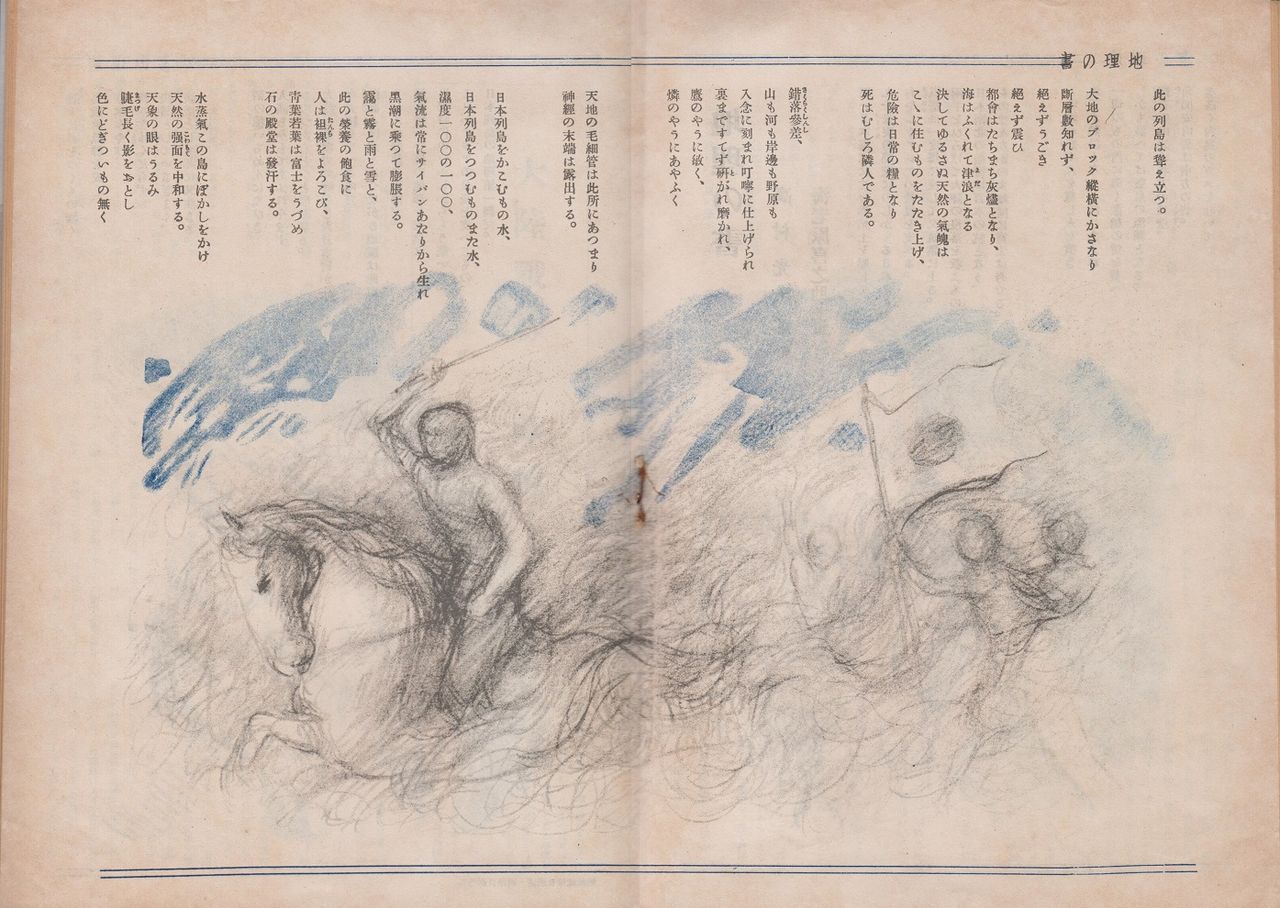 地理の書
此の列島は聳え立つ。
大地のブロック縱橫にかさなり
斷層數知れず、
絕えずうごき
絕えず震ひ
都會はたちまち灰燼となり、
海はふくれて津浪となる
決してゆるさぬ天然の氣魄は
こゝに住むものをたたき上げ、
危險は日常の糧となり
死はむしろ隣人である。
錯落參差、
山も河も岸邊も野原も
入念に刻まれ叮嚀に仕上げられ
裏まですてず硏がれ磨かれ、
鷹のやうに敏く、
燐のやうにあやふく
天地の毛細管は此所にあつまり
神經の末端は露出する。
日本列島をかこむもの水、
日本列島をつつむものまた水、
濕度一〇〇の一〇〇、
氣流は常にサイパンあたりから生れ
黑潮に乘つて膨脹する。
靄と霧と雨と雪と、
此の榮養の飽食に
人は袒裸をよろこび、
靑葉若葉は富士をうづめ
石の殿堂は發汗する。
水蒸氣この島にぼかしをかけ
天然の强面を中和する。
天象の眼はうるみ
睫毛長く影をおとし
色にどぎついもの無く